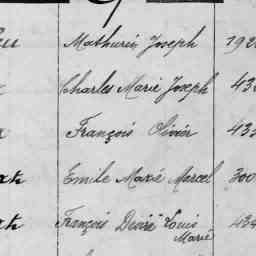 Mathurin Joseph 192
Charles Marie Joseph 43
François Olivier 433
Emile Maxé Marcel 300
François Desiré Louis 434
Marie